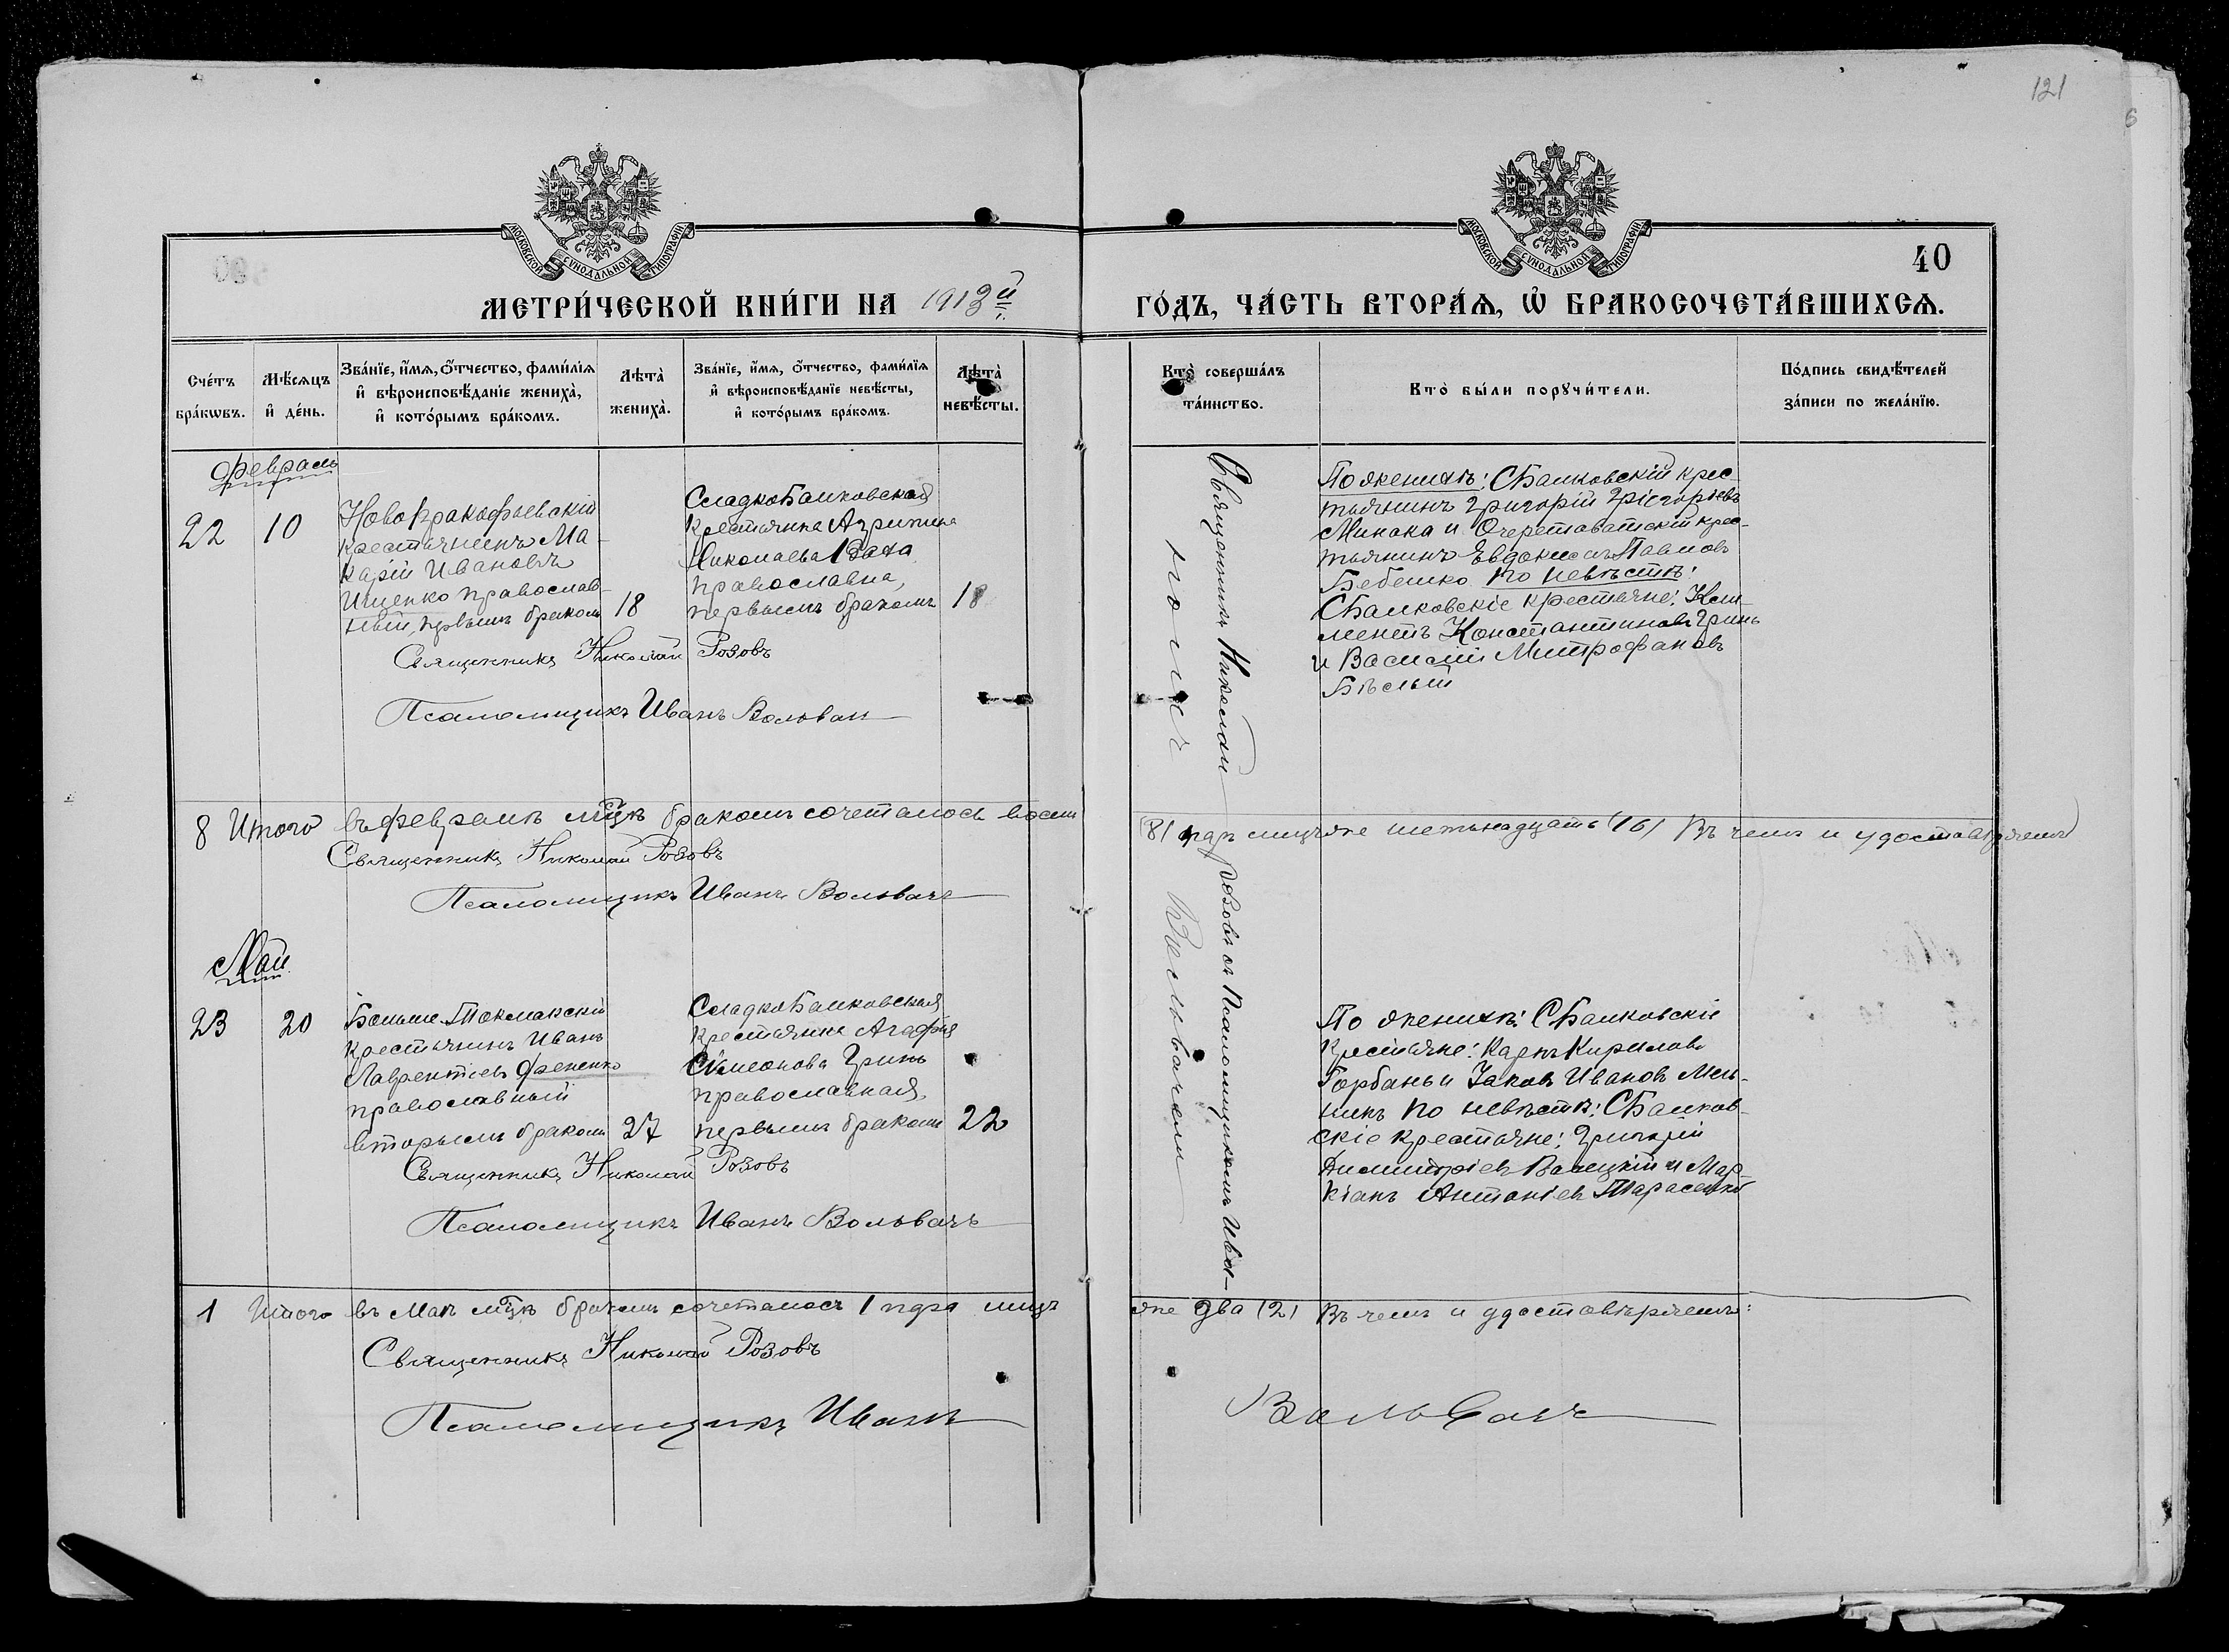 121
6
МОСКОВСКОЙ СУНОДАЛЬНОЙ ТИПОГРАФІИ
МОСКОВСКОЙ СУНОДАЛЬНОЙ ТИПОГРАФІИ
40
МЕТРИ́ЧЕСКОЙ КНИ́ГИ НА 1913й
ГО́ДЪ, ЧА́СТЬ ВТОРА́Ѧ, Ѡ҆ БРАКОСОЧЕТА́ВШИХСѦ.
Сче́тъ бра́кѡвъ.
Мѣ́сяцъ и҆ де́нь.
Зва́нїе, и҆́мя, ѻ҆́тчество, фами́лїя
и҆ вѣроисповѣ́данїе жениха̀,
и҆ кото́рымъ бра́комъ.
Лѣта̀ жениха̀.
Зва́нїе, и҆́мя, ѻ҆́тчество, фами́лїя
и҆ вѣроисповѣ́данїе невѣ́сты,
и҆ кото́рымъ бра́комъ.
Лѣта̀ невѣ́сты.
Кто̀ соверша́лъ
та́инство.
Кто̀ бы́ли порꙋчи́тели.
По́дпись свидѣ́телей
за́писи по жела́нїю.
Февраль
22
10
Новопрокофьевскій
крестьянинъ Ма-
карій Ивановъ
Ищенко православ-
ный, первымъ бракомъ
18
СладкоБалковская
крестьянка Агрипина
Николаева
православна,
первымъ бракомъ
18
Священникъ Николай Розовъ
Псаломщикъ Иванъ Вольвач
Священникъ Николай Розовъ съ Псаломщикомъ Ива-
номъ Вольвачемъ
По женихѣ: СБалковскій крес-
тьянинъ Григорій Грігорьевъ
Минака и Очеретоватскій крес-
тьянинъ Евдокимъ Павловъ
Бебешко по невѣстѣ:
СБалковскіе крестьяне: Кли-
ментъ Константиновъ Гринь
и Василій Митрофановъ
Бѣлый
8 Итого въ февралѣ мцѣ бракомъ сочеталось восемь
(8) паръ лицъ же шетьнадцать (16) Въ чемъ и удостовѣряемъ
Священникъ Николай Розовъ
Псаломщикъ Иванъ Вольвачъ
Май
23
20
Больше-Токмакскій
крестьянинъ Иванъ
Лаврентіевъ Фененко
православный
вторымъ бракомъ
27
СладкоБалковская,
крестьянка Агафія
Симеонова Гринь
православная,
первымъ бракомъ
22
Священникъ Николай Розовъ
Псаломщикъ Иванъ Вольвачъ
По женихѣ: СБалковскіе
крестьяне: Карпъ Кириловъ
Горбань и Іаковъ Ивановъ Мель-
никъ по невѣстѣ: СБалков-
скіе крестьяне: Григорій
Димитріевъ Валецкій и Мар-
кіанъ Антоніевъ Тарасенко
1 Итого въ Маѣ мцѣ бракомъ сочеталось 1 пара лицъ
же два (2) Въ чемъ и удостовѣряемъ:
Священникъ Николай Розовъ
Псаломщикъ Иванъ
Вольвачъ